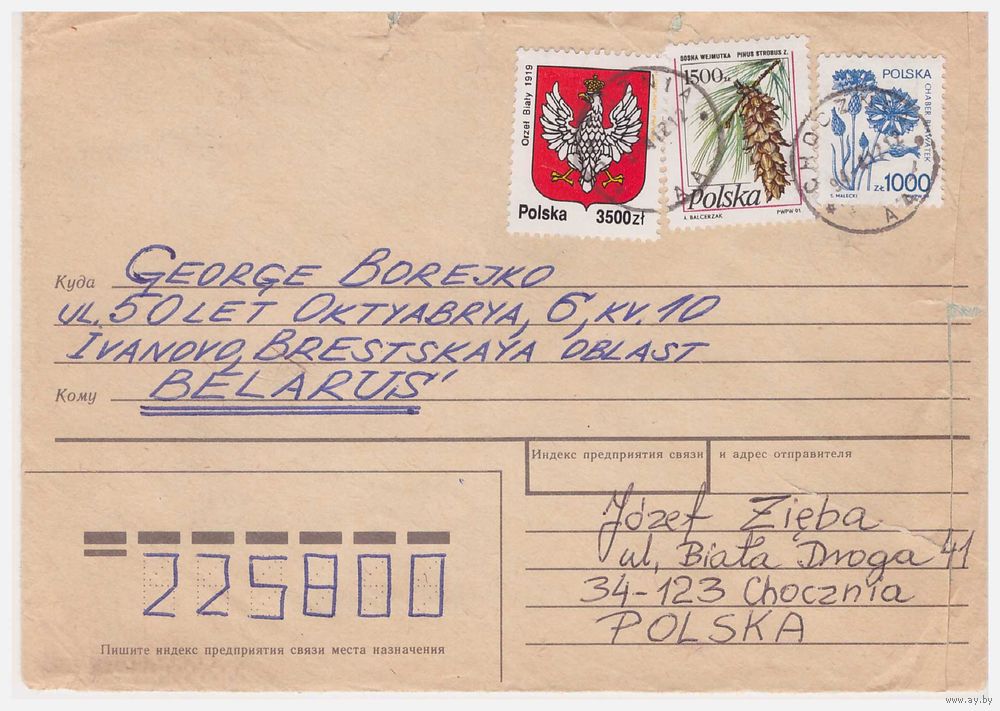 Orzeł Biały 1919
Polska 3500 zł
SOSNA WEJMUTKA PINUS STROBUS Z.
1500 zł
Polska
A. BALCERZAK PWPW 91
POLSKA
CHABER BŁAWATEK
ZŁ 1000
S. MAŁECKI
CHOCZNIA
AA
Куда George Borejko
ul. 50 let Oktyabrya, 6, kv. 10
Ivanovo, Brestskaya oblast
Кому BELARUS'
Индекс предприятия связи и адрес отправителя
Józef Zięba
ul, Biała Droga 41
34-123 Chocznia
POLSKA
225800
Пишите индекс предприятия связи места назначения
www.ay.by